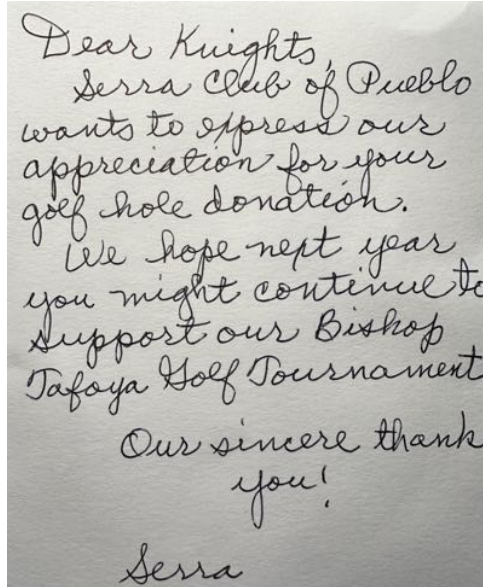 Dear Knights,
Serra Club of Pueblo
wants to express our
appreciation for your
golf hole donation.
We hope next year
you might continue to
support our Bishop
Tafoya Golf Tournament
Our sincere thank
you!
Serra